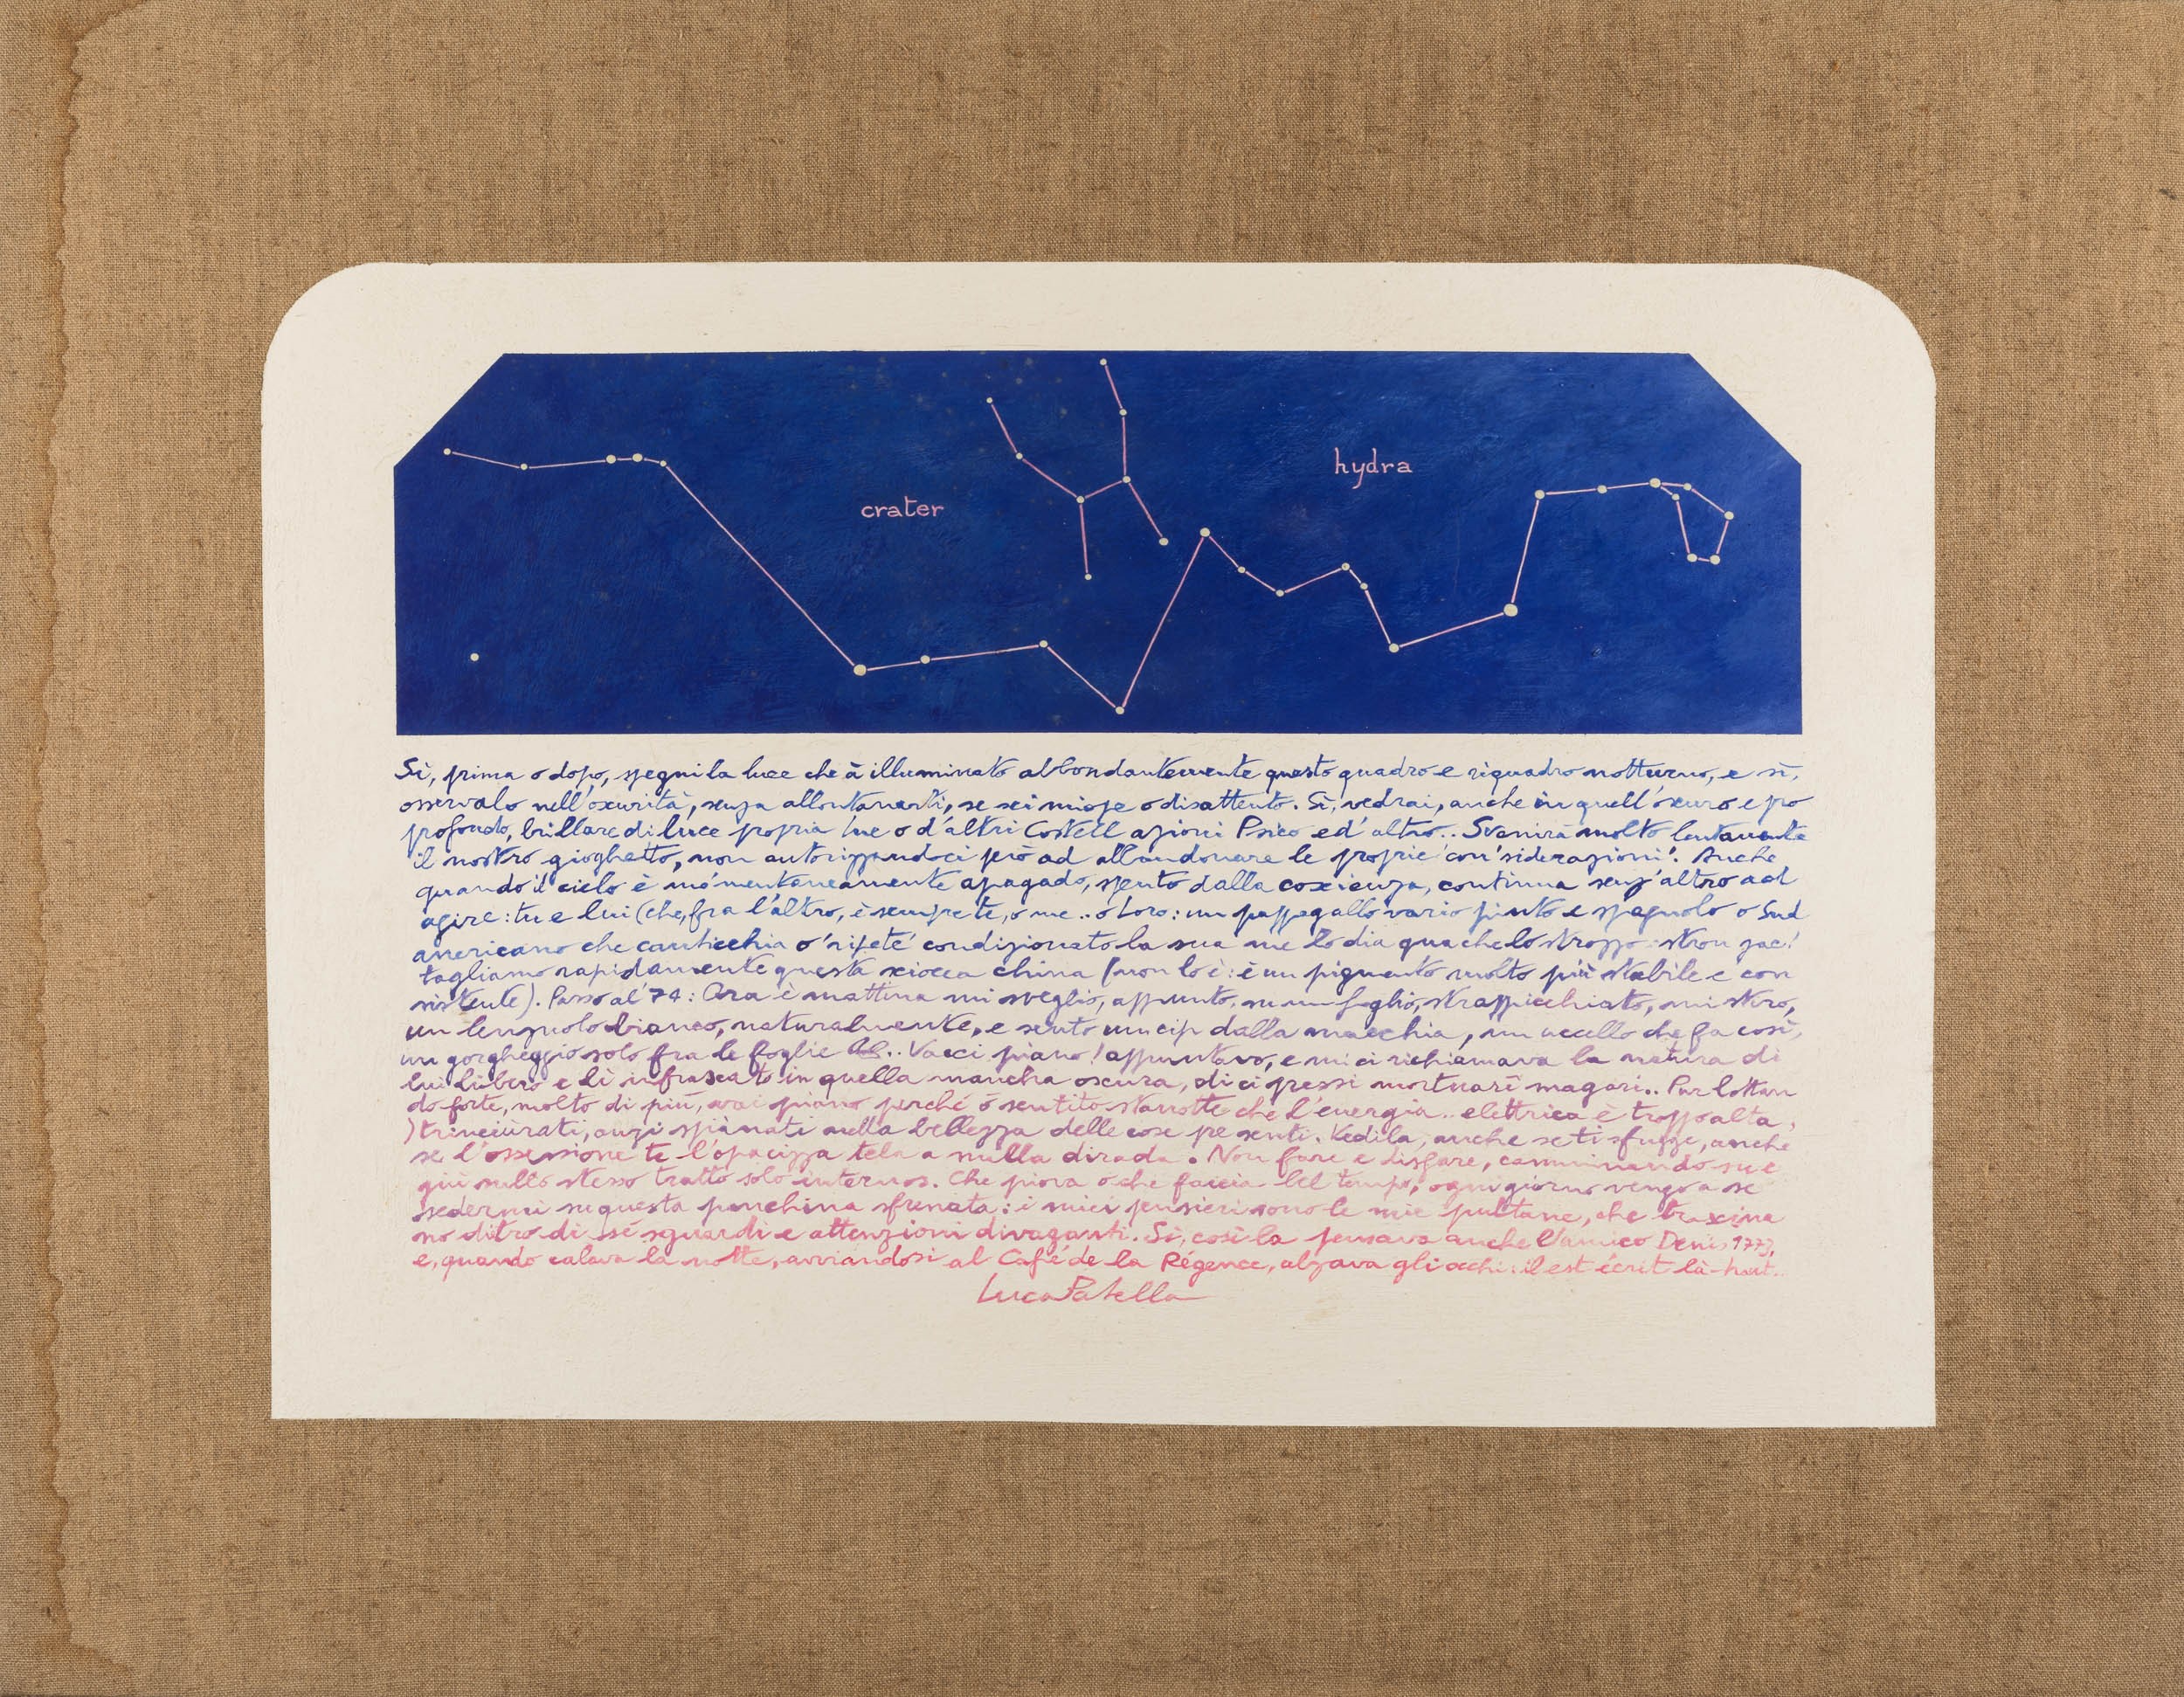 hydra
crater
Sì, prima o dopo, spegni la luce che à illuminato abbondantemente questo quadro e riquadro notturno, e sì,
osservalo nell'oxurità, senza allontanarti, se sei miope o disattento. Sì, vedrai, anche in quell'oxuro e pro
profondo, brillare di luce propria tue o d'altri Costell azioni Psico ed' altro.. Svanirà molto lentamente
il nostro gioghetto, non autorizzandoci però ad abbandonare le proprie 'con'siderazioni'. Anche
quando il cielo è mo'mentaneamente apagado, spento dalla coxienza, continua senz'altro ad
agire: tu e lui (che, fra l'altro, è sempre te, o me.. o Loro: un pappagallo vario pinto e spagnolo o Sud
americano che canticchia o 'ripete' condizionato la sua me lo dia qua che lo strozzo: stron zac!
tagliamo rapidamente questa sciocca china (non lo è: è un pigmento molto più stabile e con
sistente). Passo al '74: Ora è mattina mi sveglio, appunto, su un foglio, strappicchiato, mi stiro,
un lenzuolo bianco, naturalmente, e sento un cip dalla macchia, un ucello che fa così,
un gorgheggio solo fra le foglie .. Vacci piano! appuntavo, e mi ci richiamava la natura di
lui libero e lì infrascato in quella mancha oscura, di cipressi mortuari magari.. Pur lottan
do forte, molto di più, vai piano perché ò sentito stanotte che l'energia.. elettrica è troppo alta,
)trinciurati, anzi spianati nella bellezza delle cose pe senti. Vedila, anche se ti sfugge, anche
se l'ossessione te l'opacizza tela a nulla dirada. Non fare e disfare, camminando su e
giù nello stesso tratto solo internos. Che piova o che faccia bel tempo, ogni giorno vengo a se
sedermi su questa panchina sfrenata: i miei pensieri sono le mie puttane, che traxina
no ditro di sé sguardi e attenzioni divaganti. Sì, così la pensava anche l'amico Denis 1773,
e, quando calava la notte, avviandosi al Café de la Régence, alzava gli occhi: il est écrit là-haut..
Luca Patella